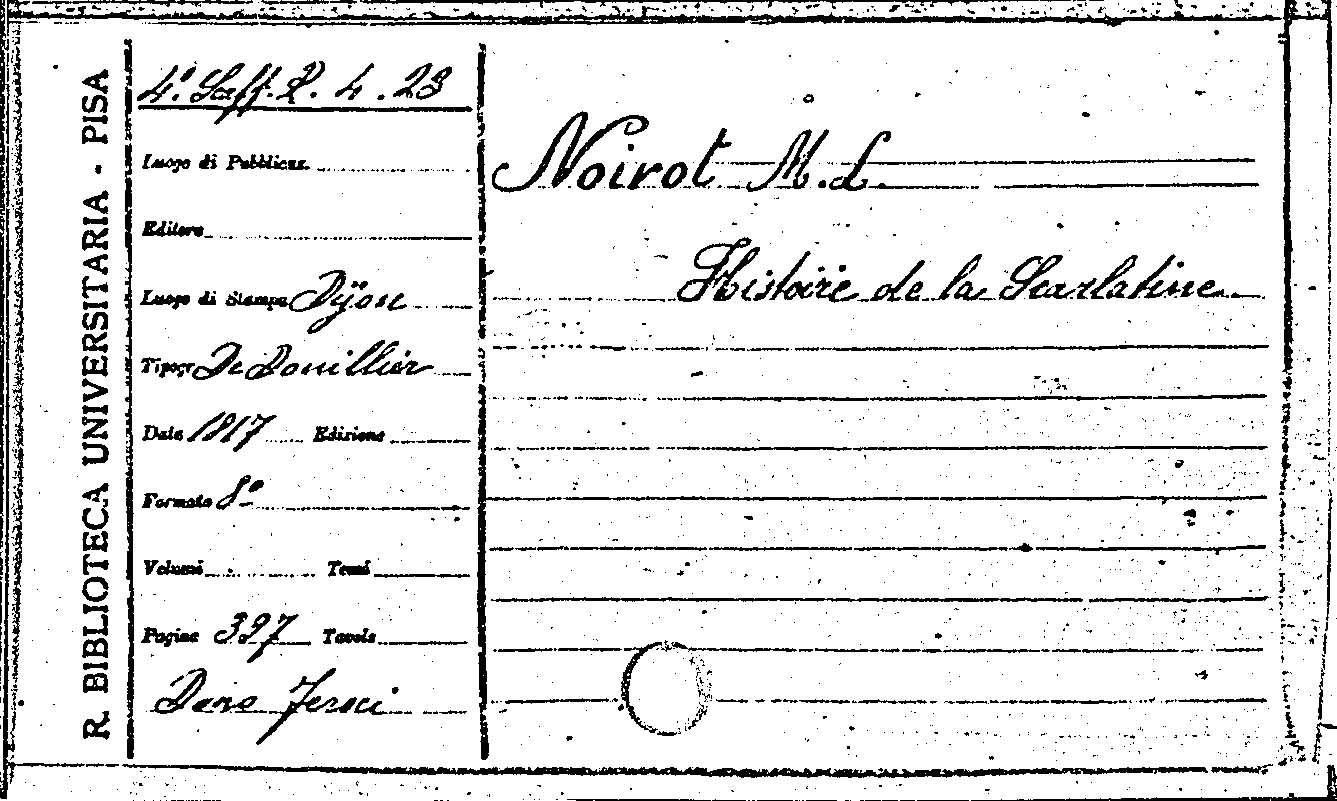 R. BIBLIOTECA UNIVERSITARIA - PISA
4º. Saff. R. 4. 23
Luogo di Pubblicaz.
Editore
Luogo di Stampa Dijon
Tipogr. De Douillier
Data 1847 Edizione
Formato 8º
Volumi Tomi
Pagine 397 Tavole
Dono Feroci
Noirot M. L.
Histoire de la Scarlatine